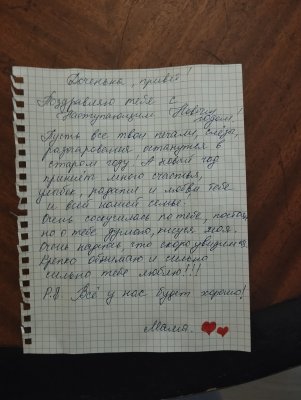 Доченька, привет!
Поздравляю тебя с
Наступающим Новым
годом!
Пусть все твои печали, слёзы,
разочарования останутся в
старом году! А новый год
принесёт много счастья,
улыбок, радости и любви тебе
и всей нашей семье.
Очень соскучилась по тебе, постоян-
но о тебе думаю, рисуня моя.
Очень надеюсь, что скоро увидимся.
Крепко обнимаю и сильно
сильно тебя люблю!!!
P.S. Всё у нас будет хорошо!
Мама.